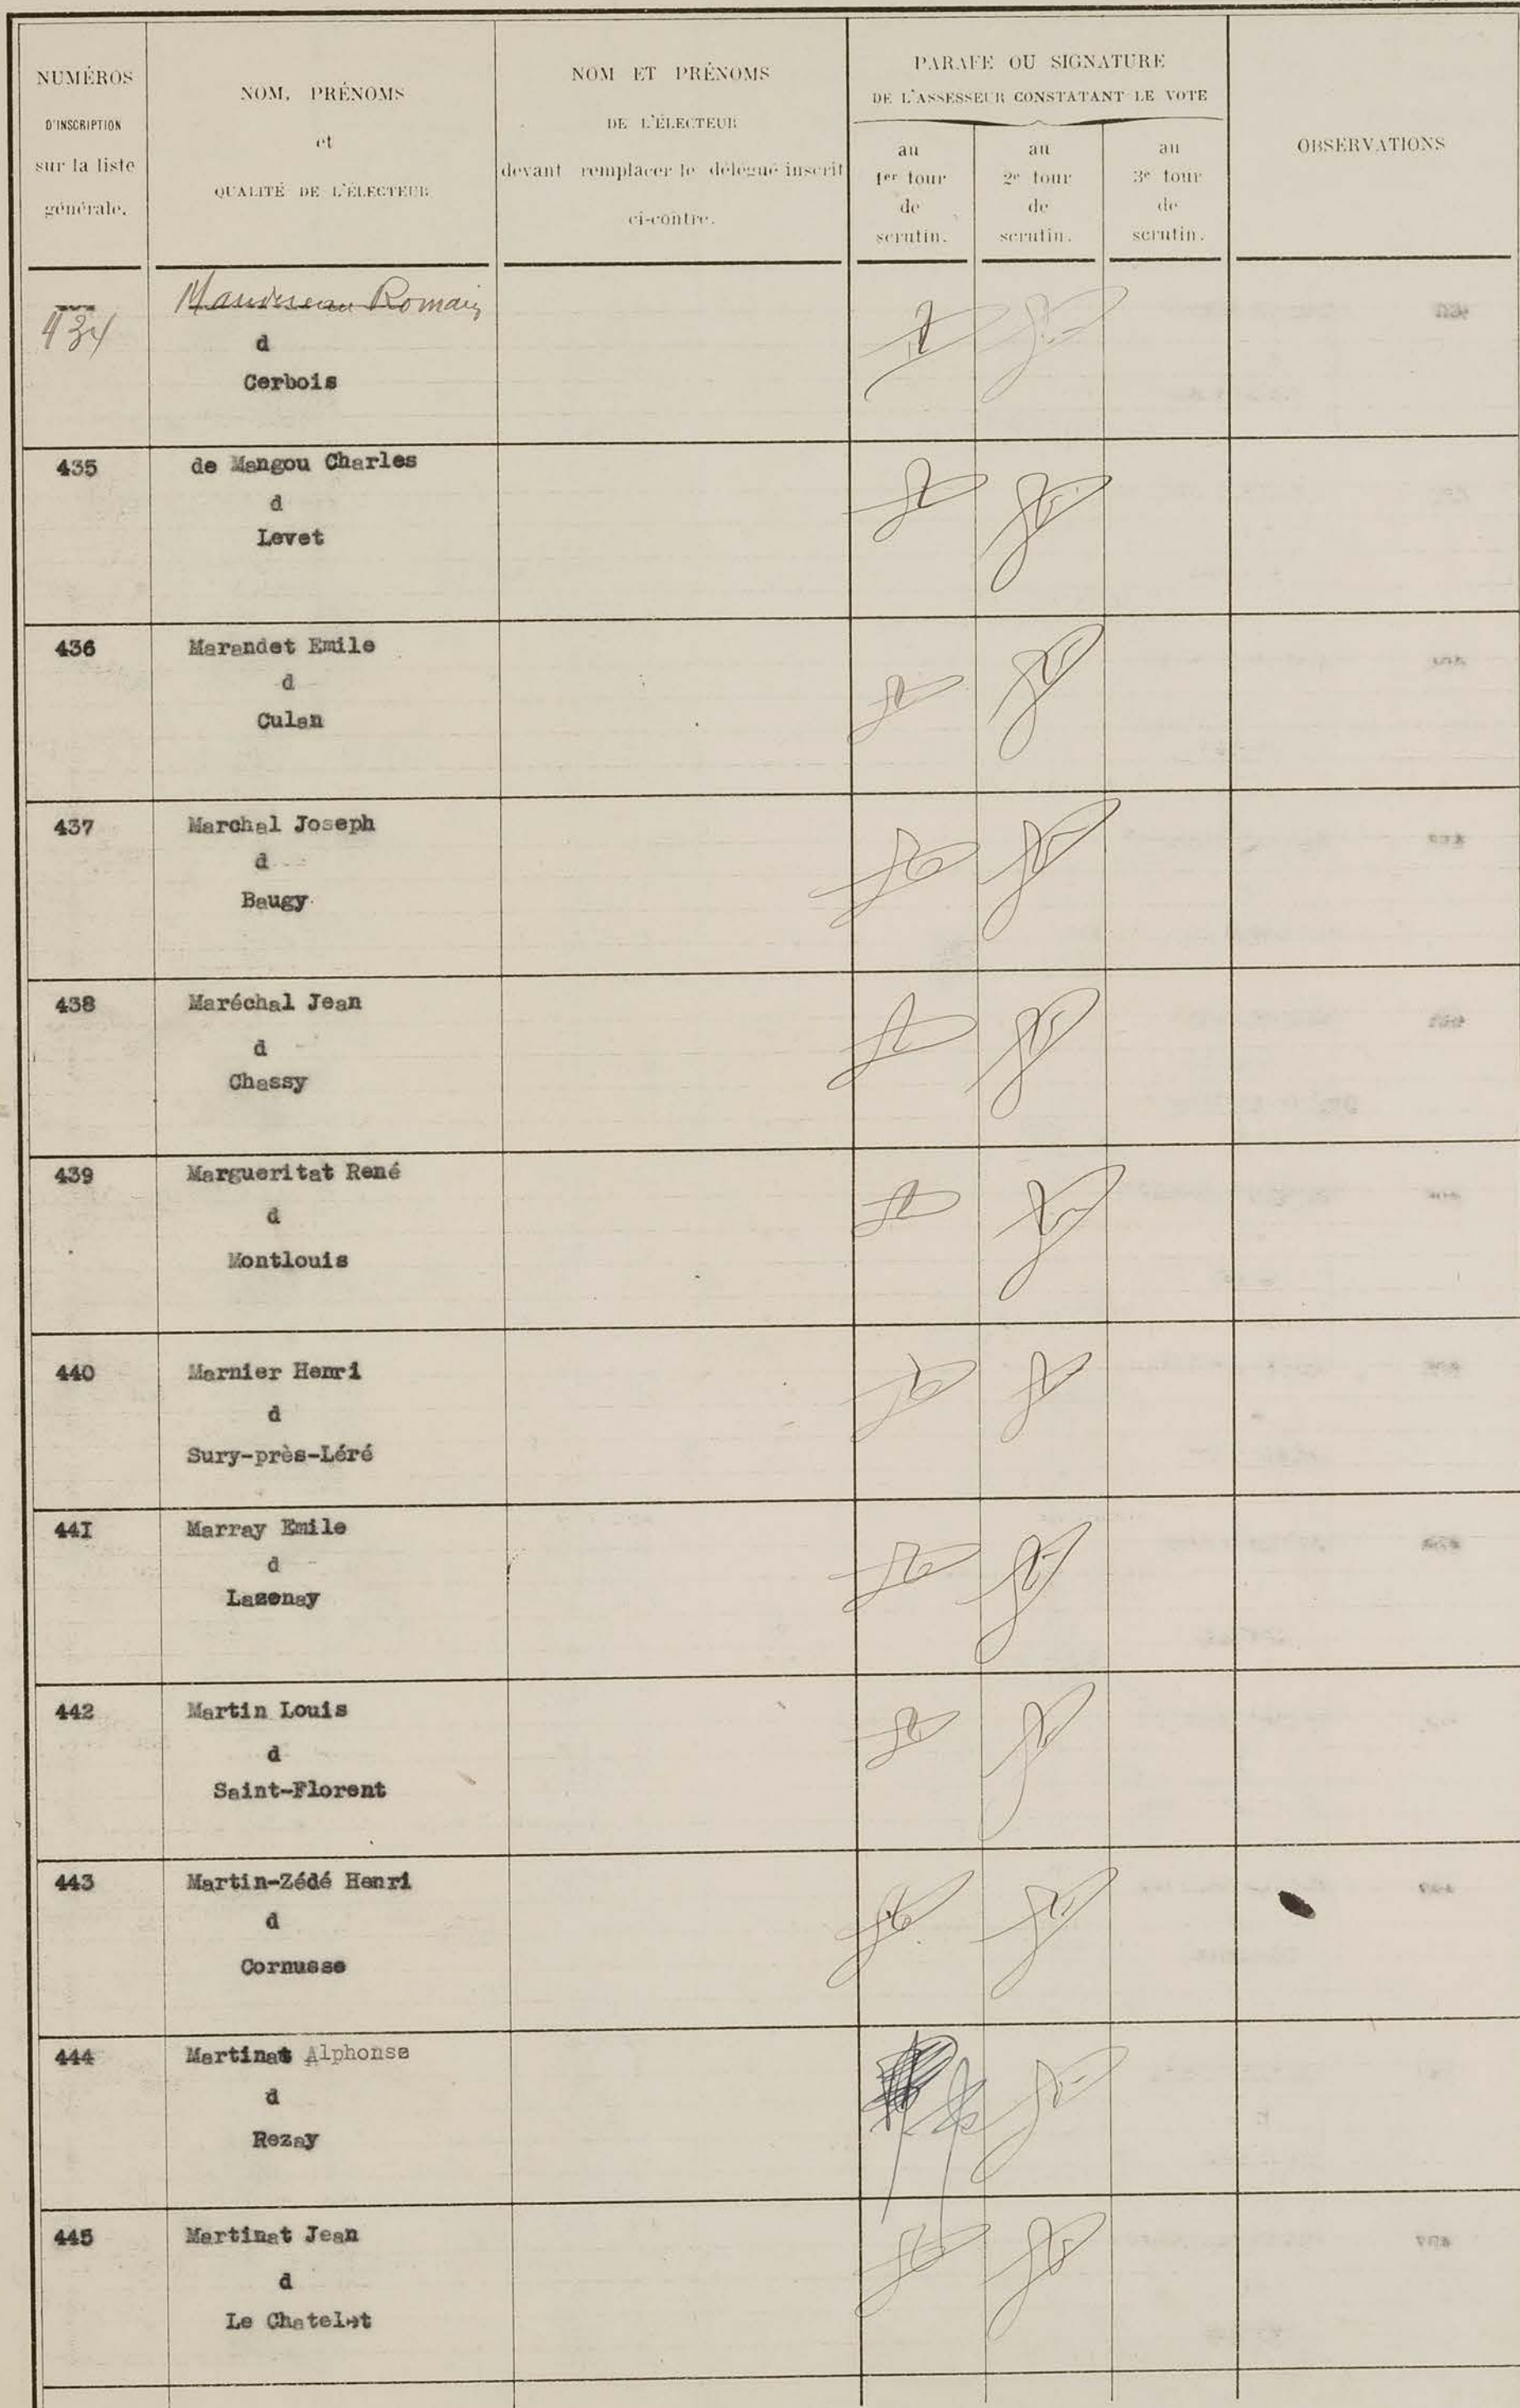 NUMÉROS
D'INSCRIPTION
sur la liste
générale.
NOM, PRÉNOMS
et
QUALITÉ DE L'ÉLECTEUR
NOM ET PRÉNOMS
DE L'ÉLECTEUR
devant remplacer le délégué inscrit
ci-contre.
PARAFE OU SIGNATURE
DE L'ASSESSEUR CONSTATANT LE VOTE
au
1er tour
de
scrutin.
au
2e tour
de
scrutin.
au
3e tour
de
scrutin.
OBSERVATIONS
434
Romain
d
Cerbois
435
de Mangou Charles
d
Levet
436
Marandet Emile
d
Culan
437
Marchal Joseph
d
Baugy
438
Maréchal Jean
d
Chassy
439
Margueritat René
d
Montlouis
440
Marnier Henri
d
Sury-près-Léré
44I
Marray Emile
d
Lazenay
442
Martin Louis
d
Saint-Florent
443
Martin-Zédé Henri
d
Cornusse
444
Martinat Alphonse
d
Rezay
445
Martinat Jean
d
Le Chatelet